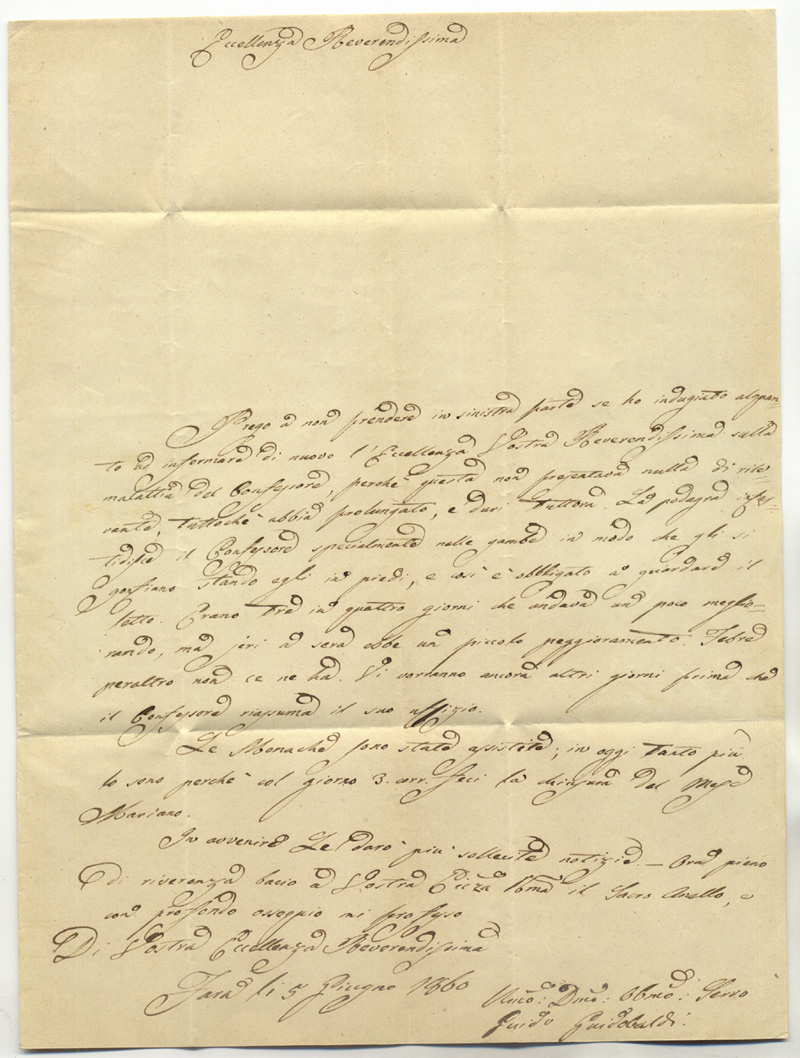 Eccellenza Reverendissima
Prego a non prendere in sinistra parte se ho indugiato alquan-
to ad informare di nuovo l'Eccellenza Vostra Reverendissima sulla
malattia del Confessore, perchè questa non presentava nulla di rile-
vante, tuttochè abbia prolungato, e duri tuttora. La podagra infa-
stidisce il Confessore specialmente nelle gambe in modo che gli si
gonfiano stando egli in piedi, e così è obbligato a guardare il
letto. Erano tre in quattro giorni che andava un poco meglio-
rando, ma jeri a sera ebbe un piccolo peggioramento. Febre
peraltro non ce ne ha. Vi vorranno ancora altri giorni prima che
il Confessore riassuma il suo uffizio.
Le Monache sono state assistite; in oggi tanto più
lo sono perchè col giorno 3. corr. feci la chiusura del Mese
Mariano.
In avvenire Le darò più sollecite notizie. — Ora pieno
di riverenza bacio a Vostra Eccza Rma il Sacro Anello, e
con profondo ossequio mi professo
Di Vostra Eccellenza Reverendissima
li 5 Giugno 1860
Umo: Dmo: Obmo: Servo
Guido Guidobaldi.